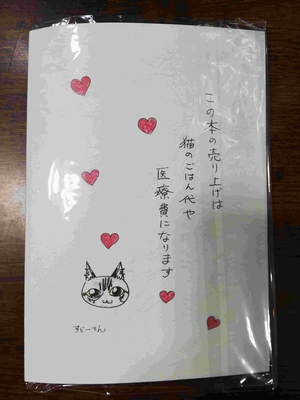 この本の売り上げは
猫のごはん代や
医療費になります